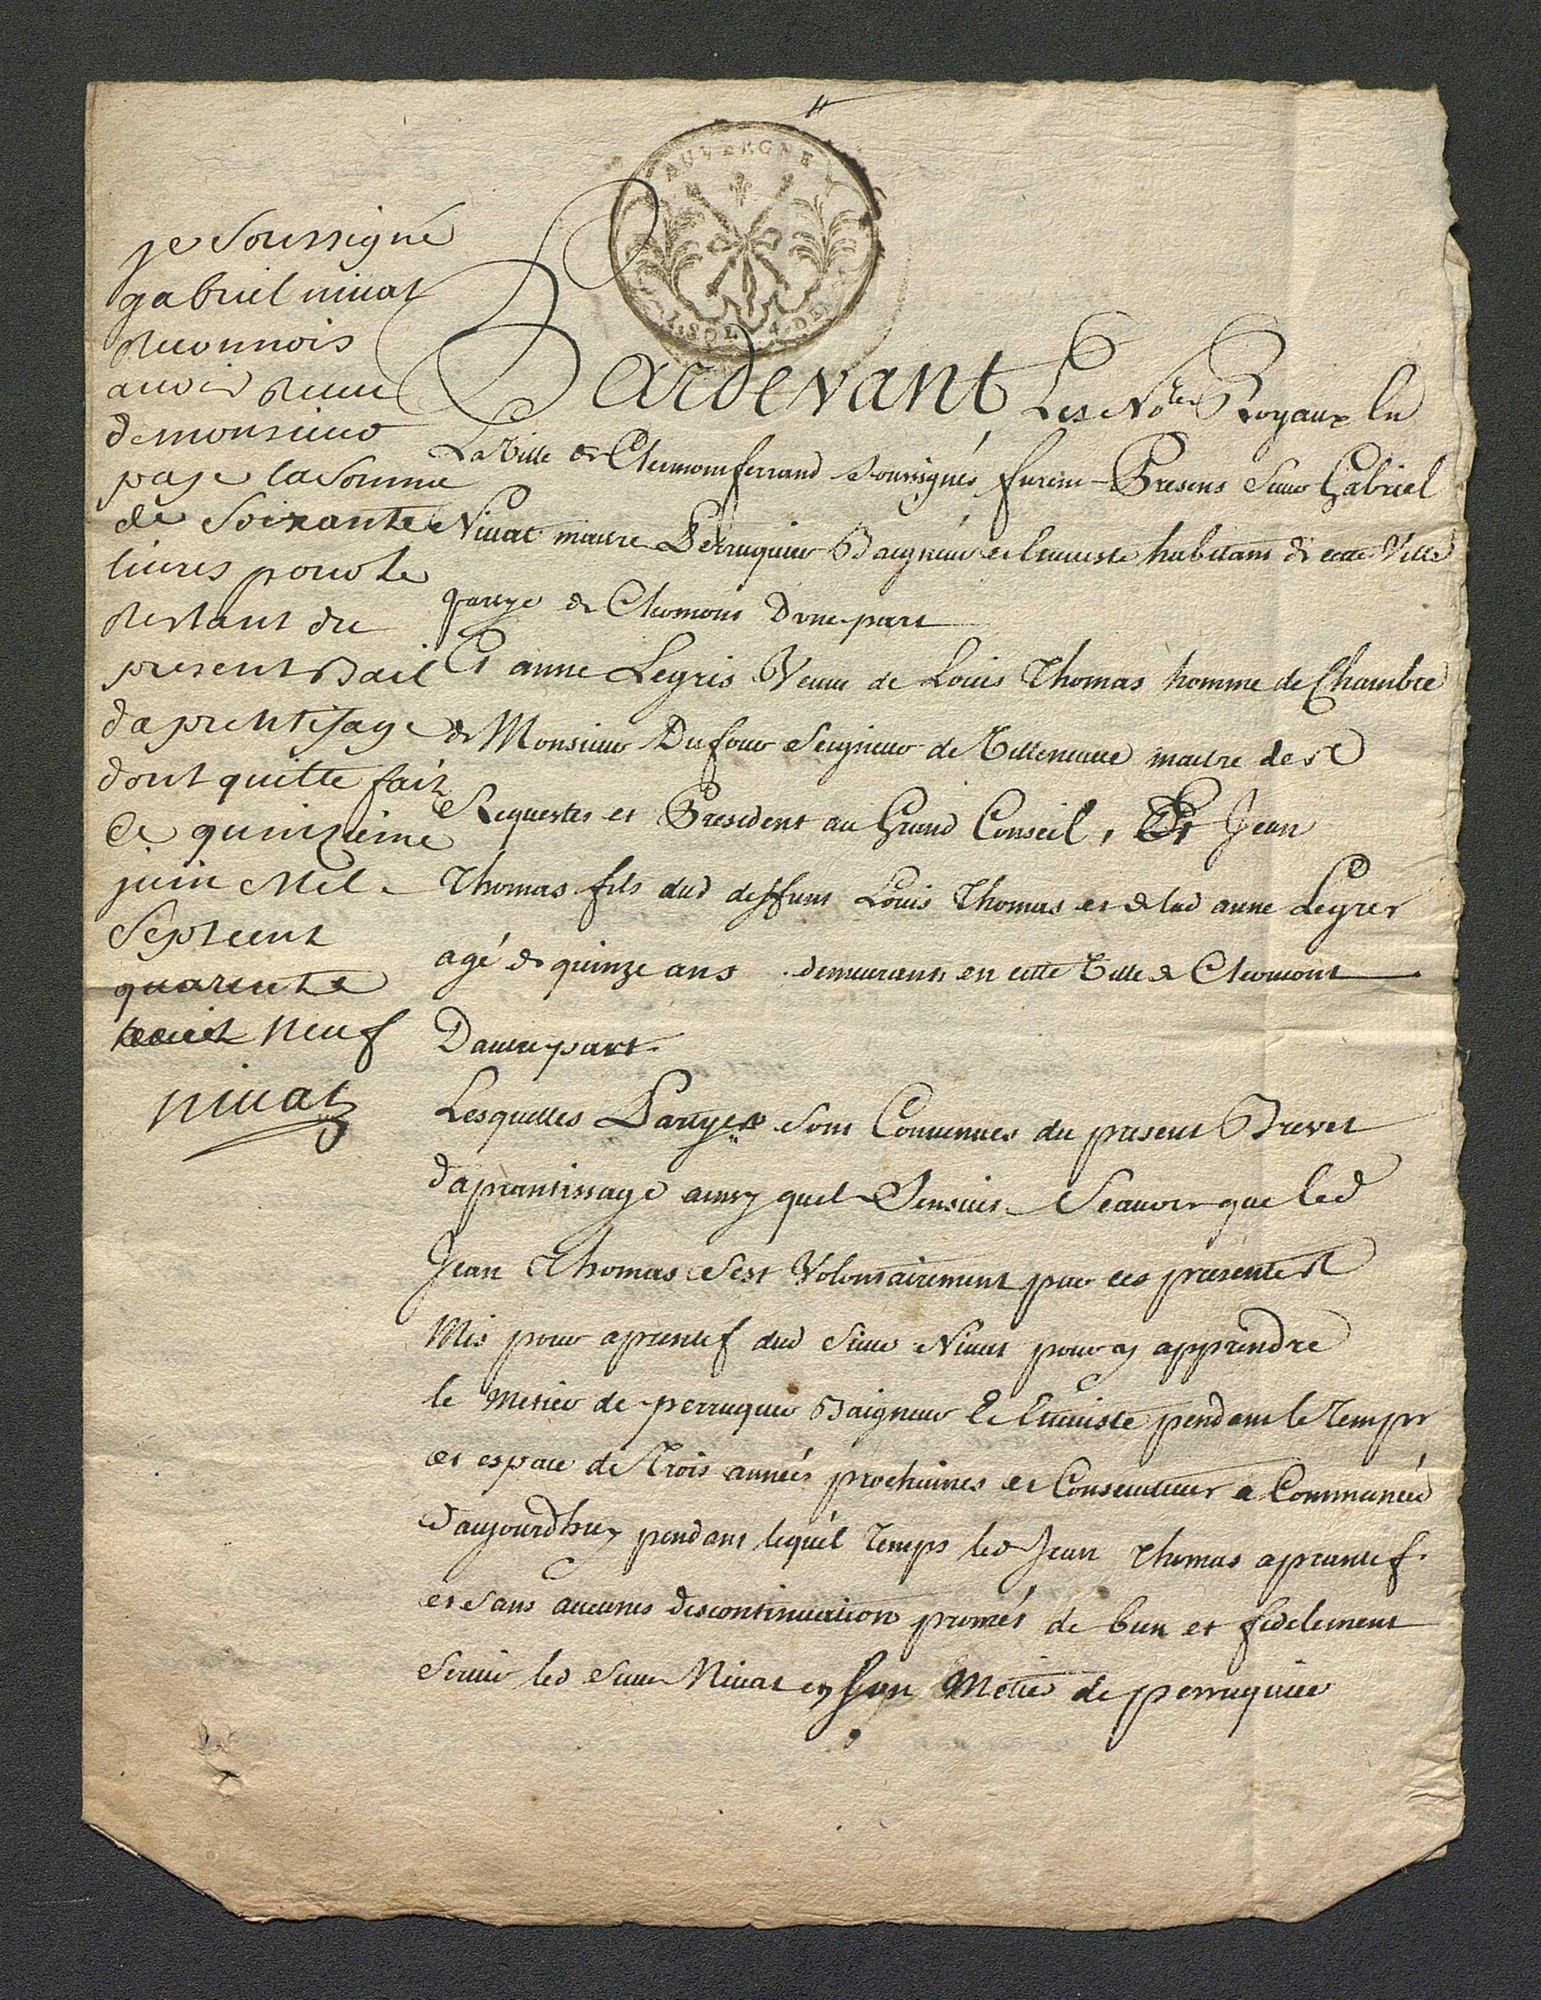 AUVERGNE
2. SOL 4. DE
je soussigné
gabriel nivat
reconnois
avoir receu
de monsieur
paje la somme
de soixante
livres pour le
restant du
present Bail
daprentisage
dont quitte fait
Ce quinzieme
juin Mil
Septcent
quarente
neuf
nivat
Pardevant Les No.res Royaux En
La Ville de Clermontferrand soussignés furent Presens Sieur Gabriel
Nivat maitre Perruquier Baigneur et Etuviste habitant de cette Ville
partye de Clermont Dune part
Et anne Legris Veuve de Louis Thomas homme de Chambre
de Monsieur Dufour Seigneur de Villeneuve maitre des
Requestes et President au Grand Conseil, Et Jean
Thomas fils dud deffunt Louis Thomas et de lad anne Legris
agé de quinze ans demeurants en cette Ville de Clermont
Dautre part
Lesquelles Partyes sont Convenues du present Brevet
daprantissage ainsy quel Sensuit Scavoir que led
Jean Thomas sest Volontairement par ces presentes
Mis pour aprentif dud Sieur Nivat pour y apprendre
le metier de perruquier Baigneur et Etuviste pendant le Temps
et espace de Trois années prochaines et Consecutives a Commancer
daujourdhuy pendant lequel Temps led Jean Thomas aprantif
et sans aucunes discontinuation promet de bien et fidelement
servir led Sieur Nivat en son Metier de perruquier